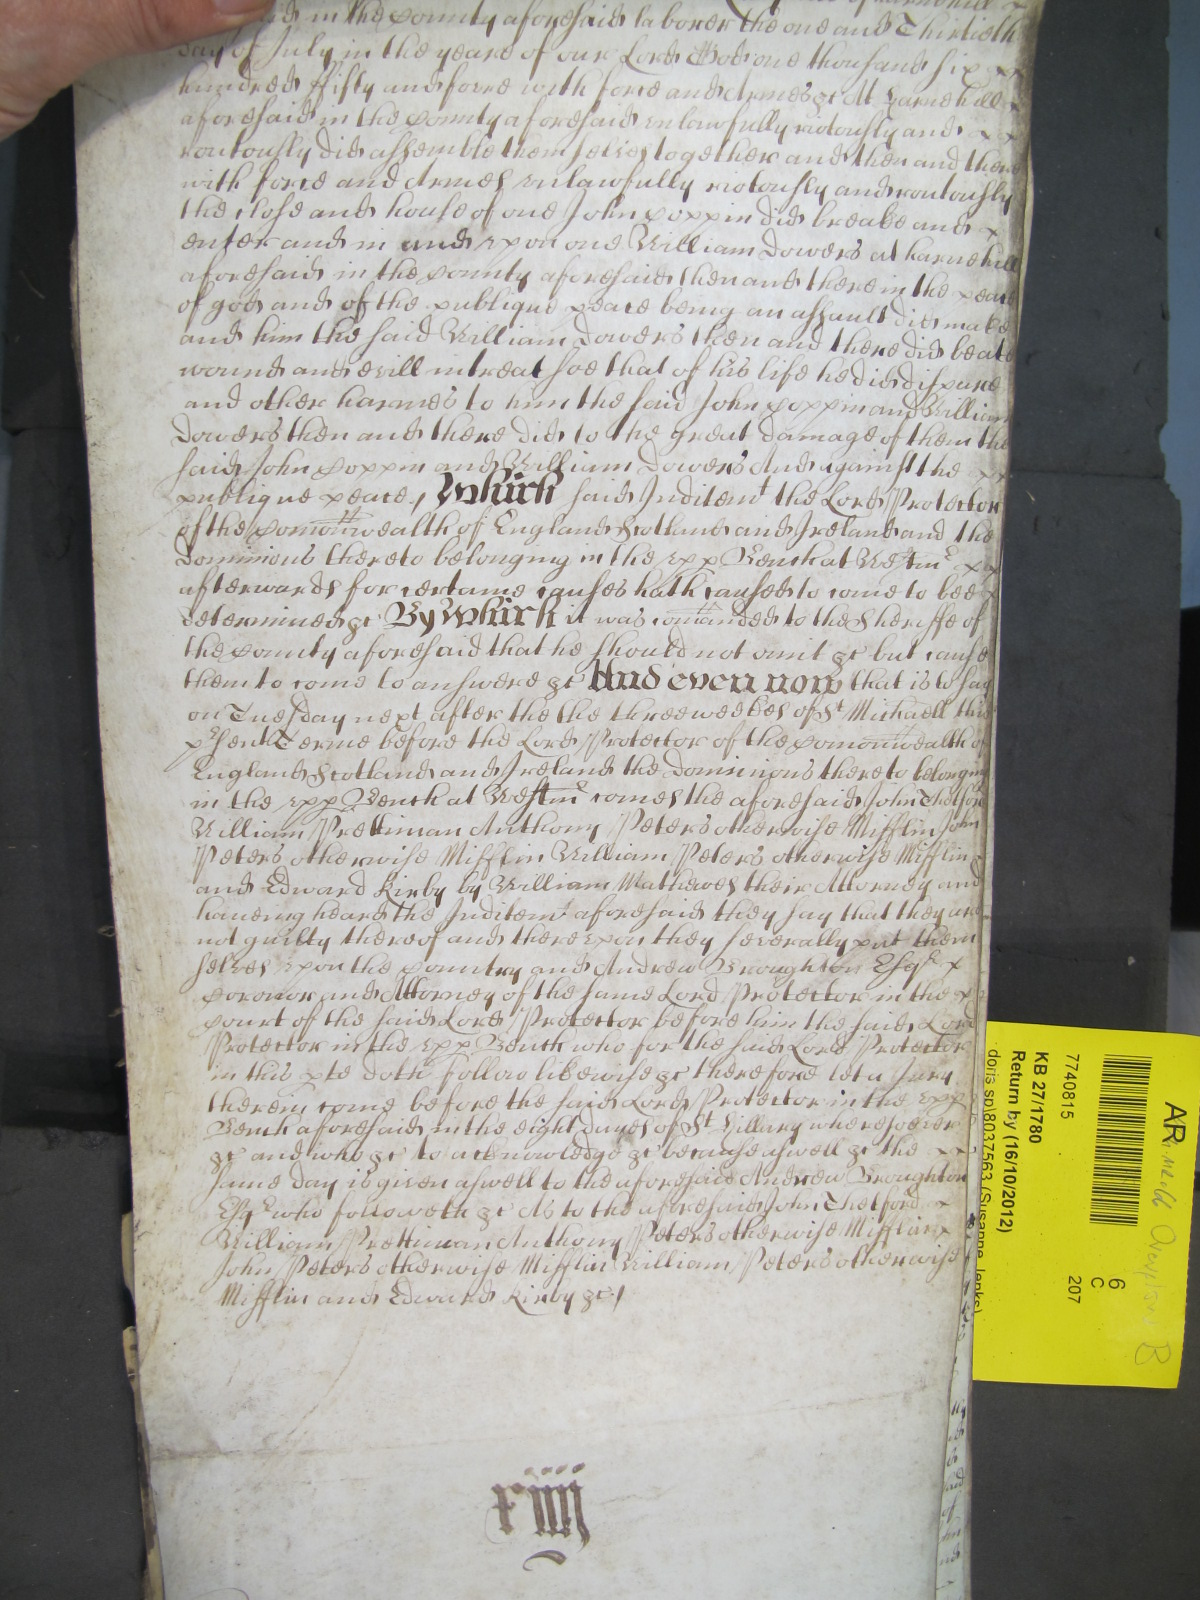 in the County aforesaid laborer the one and Thirtieth
day of July in the yeare of our Lord God one thousand six
hundred ffifty and foure with force and Armes &c At Harnehill
aforesaid in the County aforesaid unlawfully riotously and
routously did assemble themselves together and then and there
with force and Armes unlawfully riotously and routously
the close and house of one John Coppin did breake and
enter and in and upon one William Dowers at harnehill
aforesaid in the County aforesaid then and there in the peace
of god and of the publique peace being an assault did make
and him the said William Dowers then and there did beate
wound and evill intreat soe that of his life he did dispare
and other harmes to him the said John Coppin and William
Dowers then and there did to the great damage of them the
said John Coppin and William Dowers And against the
publique peace, Which said Inditemt the Lord Protector
of the Comonwealth of England Scotland and Ireland and the
Dominions thereto belonging in the upp Bench at Westmr
afterwards for certaine causes hath caused to come to bee
determined &c By Which it was comanded to the Sheriffe of
the County aforesaid that he should not omit &c but cause
them to come to answere &c And even now that is to say
on Tuesday next after the the three weekes of St Michaell this
psent Terme before the Lord Protector of the Comonwealth of
England Scotland and Ireland the Dominions thereto belonging
in the upp Bench at Westmr comes the aforesaid John Thetford
William Prettiman Anthony Peters otherwise Mifflin John
Peters otherwise Mifflin William Peters otherwise Mifflin
and Edward Kirby by William Mathewes their Attorney and
haveing heard the Inditemt aforesaid they say that they are
not guilty thereof and thereupon they severally put them
selves upon the Country and Andrew Broughton Esqr
Coronor and Attorney of the same Lord Protector in the
Court of the said Lord Protector before him the said Lord
Protector in the upp Bench who for the said Lord Protector
in this pte doth follow likewise &c therefore let a Jury
therein come before the said Lord Protector in the upp
Bench aforesaid in the eight dayes of St Hillary wheresoever
&c and who &c to acknowledge &c because aswell &c the
same day is given aswell to the aforesaid Andrew Broughton
Esqr who followeth &c As to the aforesaid John Thetford
William Prettiman Anthony Peters otherwise Mifflin
John Peters otherwise Mifflin William Peters otherwise
Mifflin and Edward Kirby &c /
xiiij
AR
6
C
207
7740815
KB 27/1780
Return by (16/10/2012)
doris sp\8037563 (Susanne Jenks)